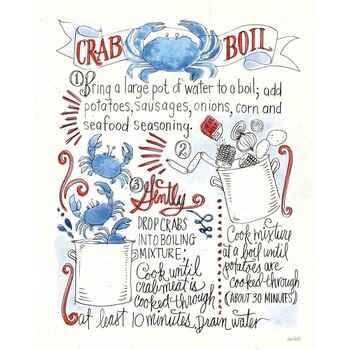 CRAB BOIL
① Bring a large pot of water to a boil; add
potatoes, sausages, onions, corn and
seafood seasoning.
②
Cook mixture
at a boil until
potatoes are
cooked through
(ABOUT 30 MINUTES)
③ Gently
DROP CRABS
INTO BOILING
MIXTURE;
Cook until
crab meat is
cooked through
at least 10 minutes. Drain water